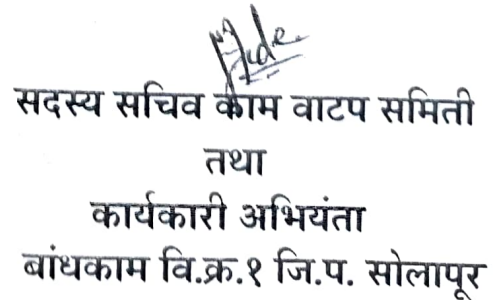 सदस्य सचिव काम वाटप समिती
तथा
कार्यकारी अभियंता
बांधकाम वि.क्र.१ जि.प. सोलापूर